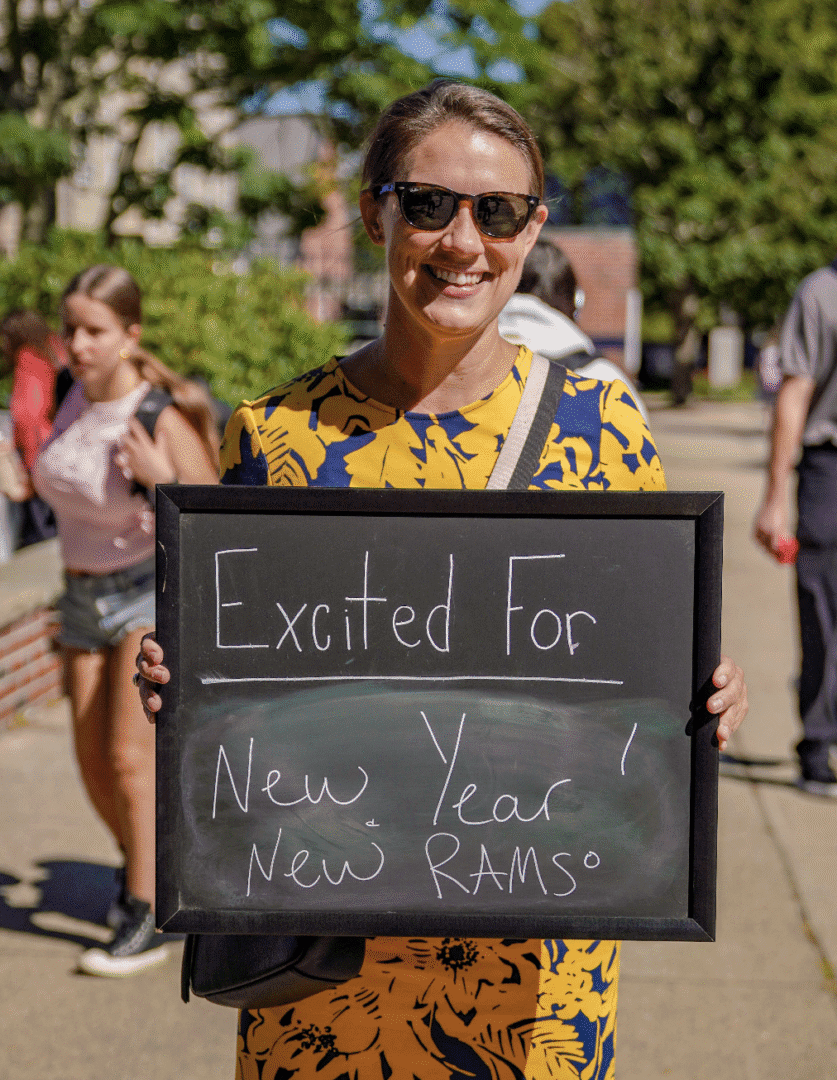 Excited For
New Year
New RAMS!